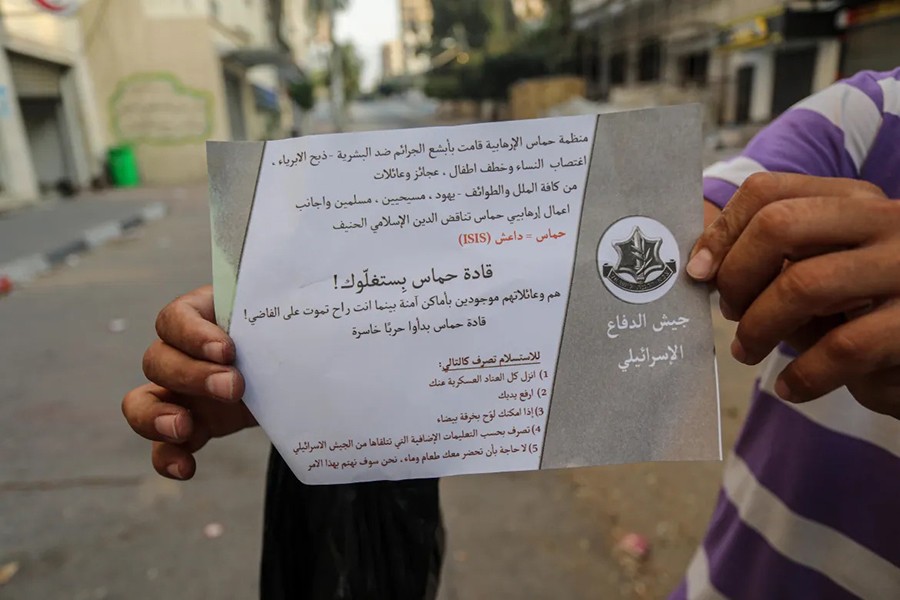 منظمة حماس الإرهابية قامت بأبشع الجرائم ضد البشرية - ذبح الابرياء ،
اغتصاب النساء وخطف اطفال ، عجائز وعائلات
من كافة الملل والطوائف - يهود ، مسيحيين ، مسلمين واجانب
اعمال إرهابيي حماس تناقض الدين الإسلامي الحنيف
حماس = داعش (ISIS)
قادة حماس بِستغلّوك!
هم وعائلاتهم موجودين بأماكن آمنة بينما انت راح تموت على الفاضي!
قادة حماس بدأوا حربًا خاسرة
للاستسلام تصرف كالتالي:
1) انزل كل العتاد العسكرية عنك
2) ارفع يديك
3) إذا امكنك لوّح بخرقة بيضاء
4) تصرف بحسب التعليمات الإضافية التي تتلقاها من الجيش الاسرائيلي
5) لا حاجة بأن تحضر معك طعام وماء، نحن سوف نهتم بهذا الامر
جيش الدفاع
الإسرائيلي